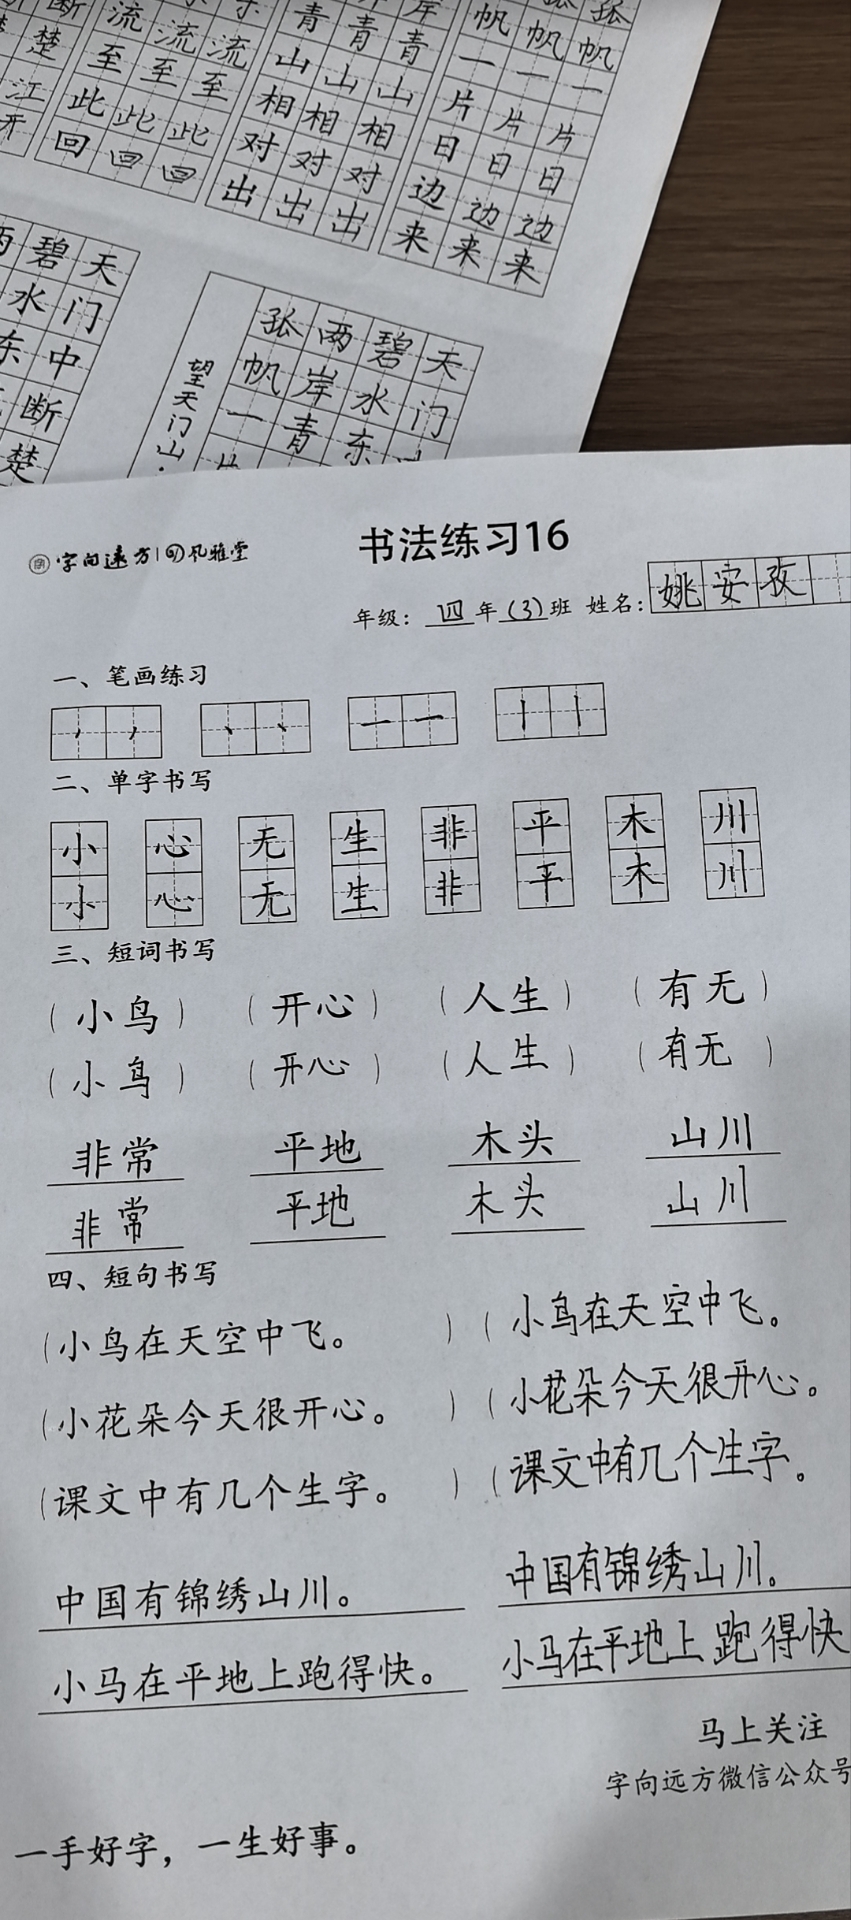 断
楚
江
开
流 流 流
至 至 至
此 此 此
回 回 回
岸
青 青 青
山 山 山
相 相 相
对 对 对
出 出 出
孤
帆 帆 帆
一 一 一
片 片 片
日 日 日
边 边 边
来 来 来
两 碧 天
水 门
东 中
断
楚
望天门山·
孤 两 碧 天
帆 岸 水 门
一 青 东
字向远方 风雅堂
书法练习16
年级：四年(3)班 姓名：姚安孜
一、笔画练习
二、单字书写
小 心 无 生 非 平 木 川
小 心 无 生 非 平 木 川
三、短词书写
（小鸟） （开心） （人生） （有无）
（小鸟） （开心） （人生） （有无）
非常 平地 木头 山川
非常 平地 木头 山川
四、短句书写
（小鸟在天空中飞。）（小鸟在天空中飞。
（小花朵今天很开心。）（小花朵今天很开心。
（课文中有几个生字。）（课文中有几个生字。
中国有锦绣山川。 中国有锦绣山川。
小马在平地上跑得快。 小马在平地上跑得快
马上关注
字向远方微信公众号
一手好字，一生好事。